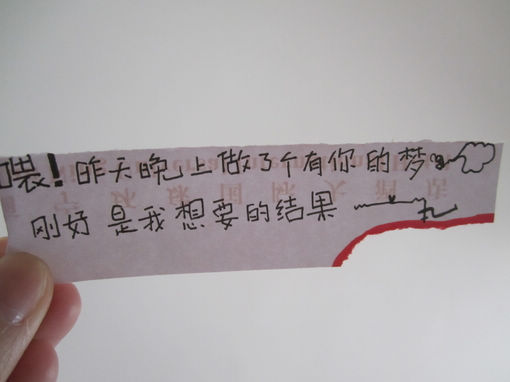 喂!昨天晚上做了个有你的梦
刚好是我想要的结果